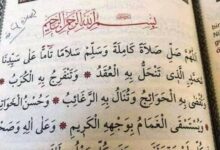 بِسْمِ اللَّهِ الرَّحْمَنِ الرَّحِيمِ
اللَّهُمَّ صَلِّ صَلَاةً كَامِلَةً وَسَلِّمْ سَلَامًا تَامًّا عَلَى سَيِّدِنَا
الَّذِي تَنْحَلُّ بِهِ الْعُقَدُ * وَتَنْفَرِجُ بِهِ الْكُرَبُ *
وَتُقْضَى بِهِ الْحَوَائِجُ * وَتُنَالُ بِهِ الرَّغَائِبُ * وَحُسْنُ الْخَوَاتِ
وَيُسْتَسْقَى الْغَمَامُ بِوَجْهِهِ الْكَرِيمِ * وَعَلَى آلِهِ وَصَحْ